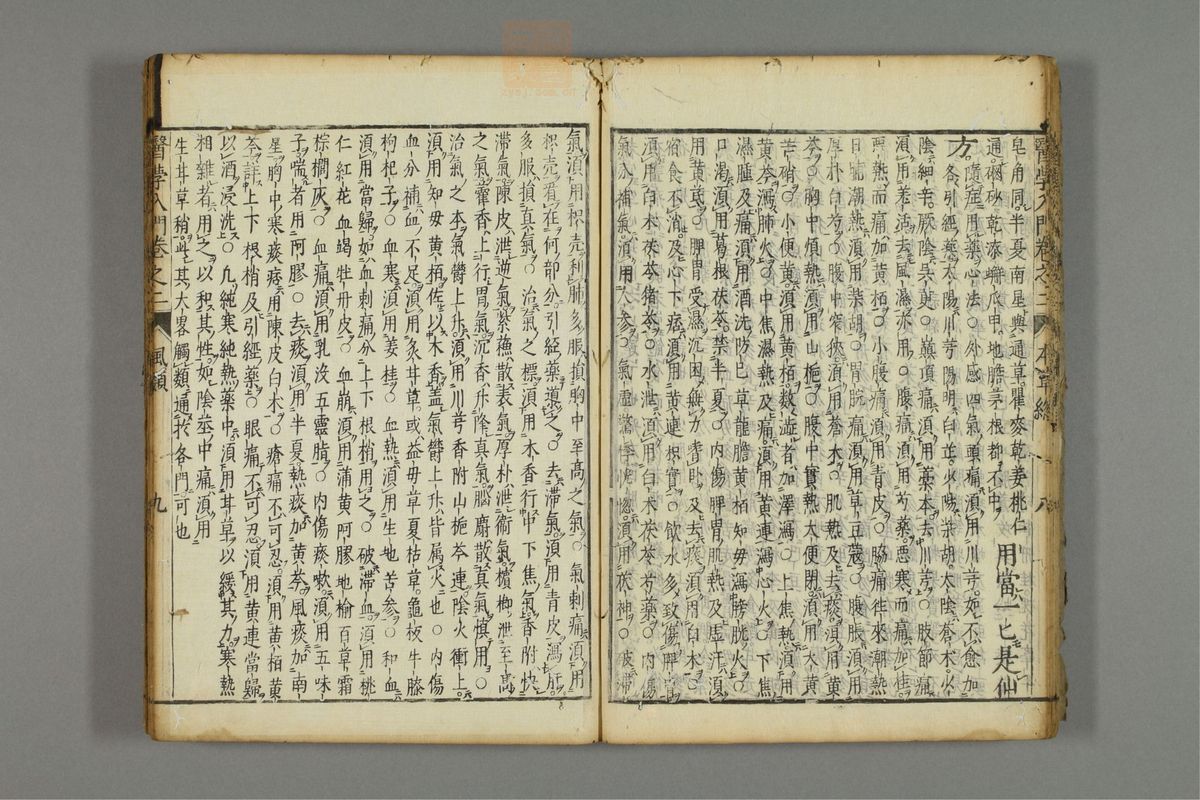 皂角同半夏南星與通草瞿麥乾姜桃仁
通硇砂乾漆蟹爪甲地膽茅根都不中 用當一匕是仙
方 隱庭用藥心法○外感四氣頭痛須用川芎如不愈加
各引經藥太陽川芎陽明白芷少陽柴胡太陰蒼朮少
陰細辛厥陰吳茱○巔頂痛須用藁本去川芎○肢節痛
須用羌活去風濕亦用○腹痛須用芍藥惡寒而痛加桂
惡熱而痛加黃栢○小腹痛須用青皮○脇痛徃來潮熱
日晡潮熱須用柴胡○胃脘痛須用草豆蔻○腹脹須用
厚朴白芍○腹中窄狹須用蒼朮○肌熱及去痰須用黃
芩○胸中煩熱須用山梔○腹中實熱大便閉須用大黃
芒硝○小便黃須用黃栢數澁者加澤瀉○上焦熱須用
黃芩瀉肺火○中焦濕熱及痛須用黃連瀉心火○下焦
濕腫及痛須用酒洗防巳草龍膽黃栢知母瀉膀胱火○
口渴須用葛根茯苓禁半夏○內傷脾胃肌熱及虛汗須
用黃茋○脾胃受濕沉困無力嗜卧及去痰須用白朮○
宿食不消及心下痞須用黃連枳實○飲水多致傷脾胃
須用白朮茯苓猪苓○水泄須用白朮茯苓芍藥○內傷
氣分補氣須用人參○氣虛驚悸恍惚須用茯神○破滯
醫學入門卷之二 本草總 八
氣須用枳壳利肺多服損胸中至高之氣○氣刺痛須用
枳壳看在何部分引經藥導之○去滯氣須用青皮瀉肝
多服損真氣○治氣之標須用木香行中下焦氣香附快
滯氣陳皮泄逆氣紫蘓散表氣厚朴泄衛氣檳榔泄至高
之氣藿香上行胃氣沉香升降真氣腦麝散真氣慎用○
治氣之本氣欝上升須用川芎香附山梔芩連陰火衝上
須用知母黃栢佐以木香盖氣欝上升皆属火也○內傷
血分補血不足須用炙甘草或益母草夏枯草龜板牛膝
枸杞子○血寒須用姜桂○血熱須用生地苦參○和血
須用當歸如血刺痛分上下根梢用之○破滯血須用桃
仁紅花血竭牡丹皮○血崩須用蒲黃阿膠地榆百草霜
棕櫚灰○血痛須用乳沒五靈脂○內傷痰嗽須用五味
子喘者用阿膠○去痰須用半夏熱痰加黃芩風痰加南
星胸中寒痰痞用陳皮白朮○瘡痛不可忍須用黃栢黃
芩詳上下根梢及引經藥○眼痛不可忍須用黃連當歸
以酒浸洗○凡純寒純熱藥中須用甘草以緩其力寒熱
相雜者用之以和其性如陰莖中痛須用
生甘草稍此其大畧觸類通扵各門可也
醫學入門卷之二 風類 九